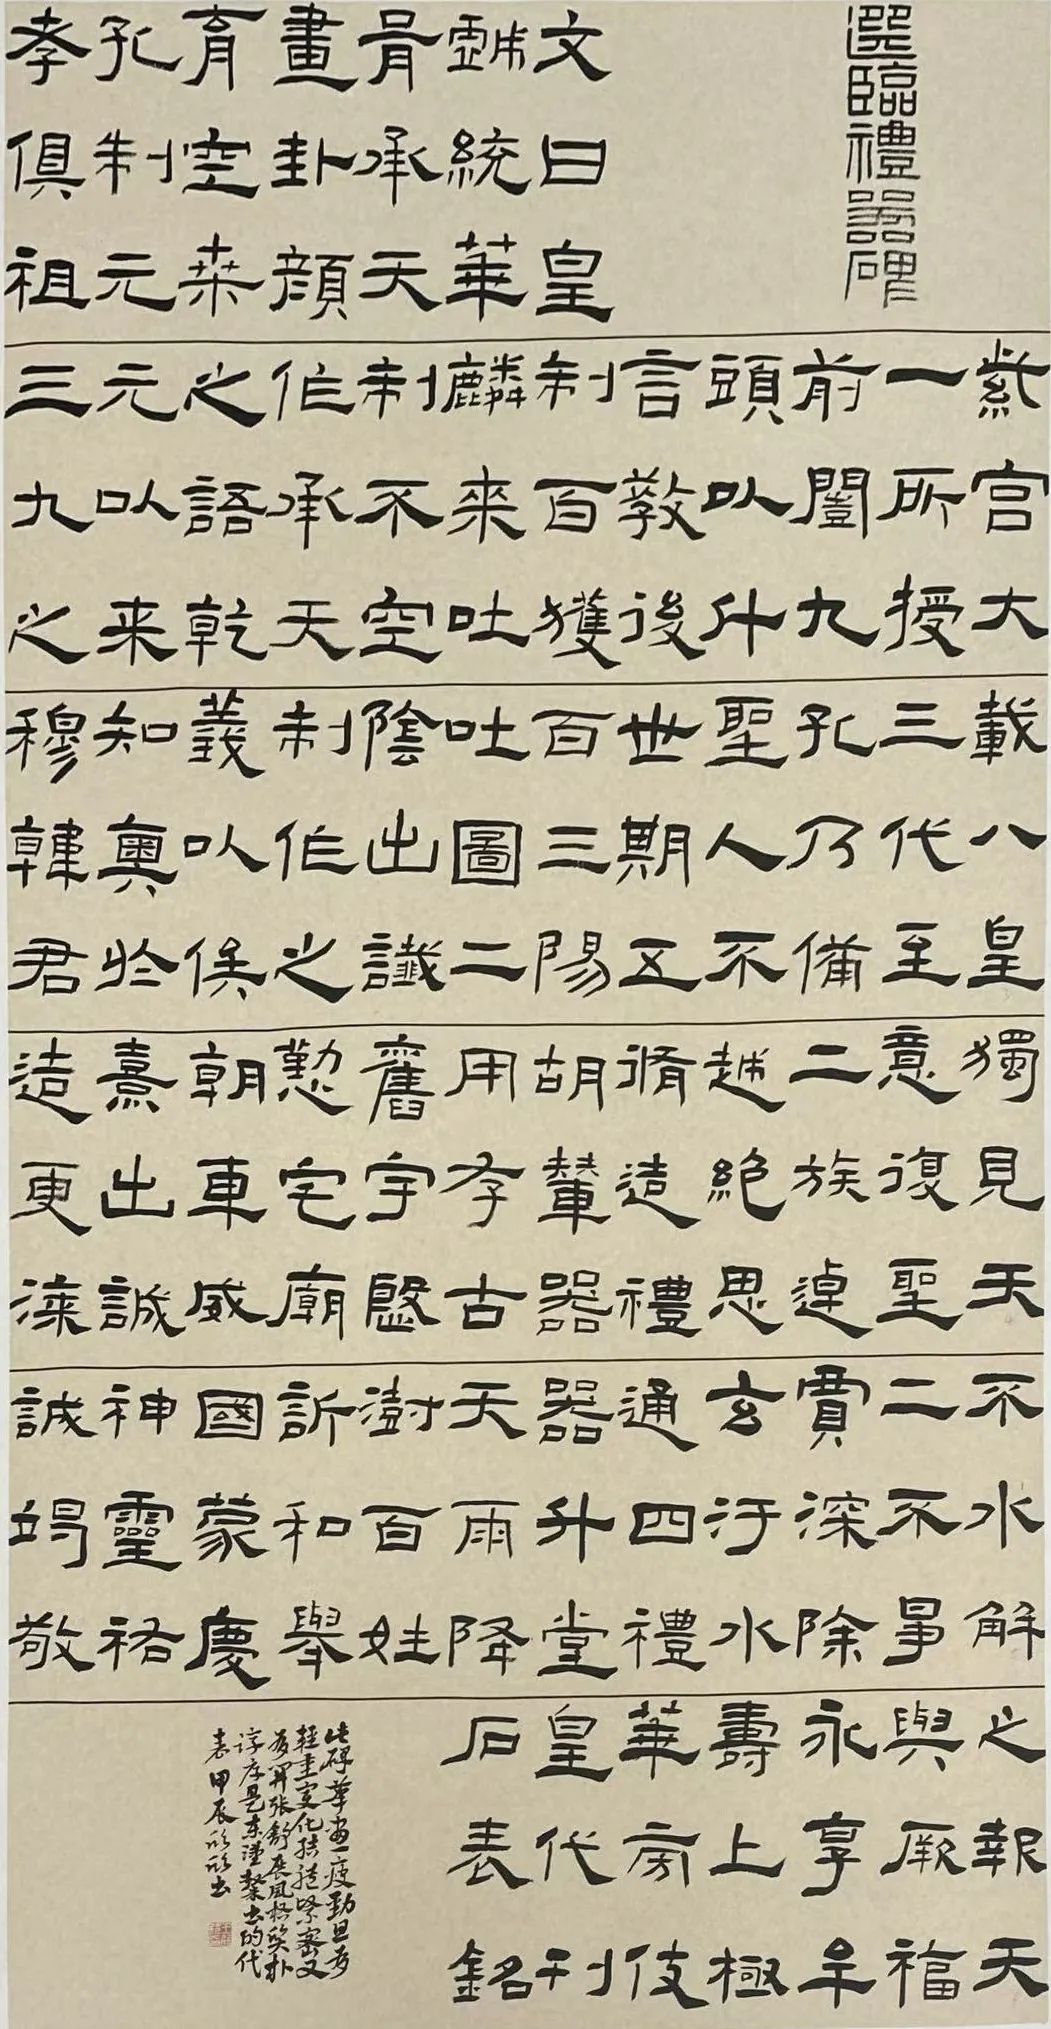 選臨禮器碑
文曰皇
戲統華
胥承天
畫卦顏
育空桑
孔制元
孝俱祖
紫宮大
一所授
前闓九
頭以什
言教後
制百獲
麟來吐
制不空
作承天
之語乾
元以来
三九之
載八皇
三代至
孔乃備
聖人不
世期五
百三陽
吐圖二
陰出讖
制作之
義以俟
知奧於
穆韓君
獨見天
意復聖
二族逴
越絕思
脩造禮
胡輦器
用存古
舊宇慇
懃宅廟
朝車威
熹出誠
造更漆
不水解
二不爭
賈深除
玄汙水
通四禮
器升堂
天雨降
澍百姓
訢和舉
國蒙慶
神靈祐
誠竭敬
之報天
與厥福
永享牟
壽上極
華旁伎
皇代刊
石表銘
此碑筆畫瘦勁且有
輕重变化結體緊密又
有開張舒展風格質朴
淳厚是东漢隸书的代
表甲辰欣欣书